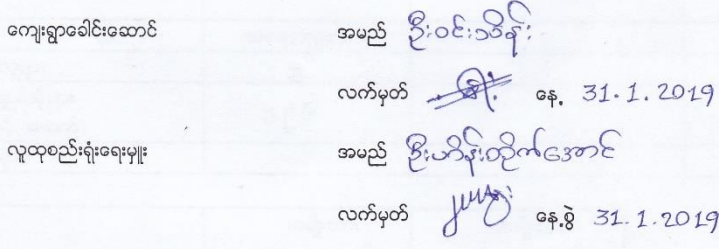 ကျေးရွာခေါင်းဆောင် အမည် ဦးဝင်းသိန်း
လက်မှတ် နေ့ 31.1.2019
လူထုစည်းရုံးရေးမှူး အမည် ဦးဟိန်းထိုက်အောင်
လက်မှတ် နေ့စွဲ 31.1.2019